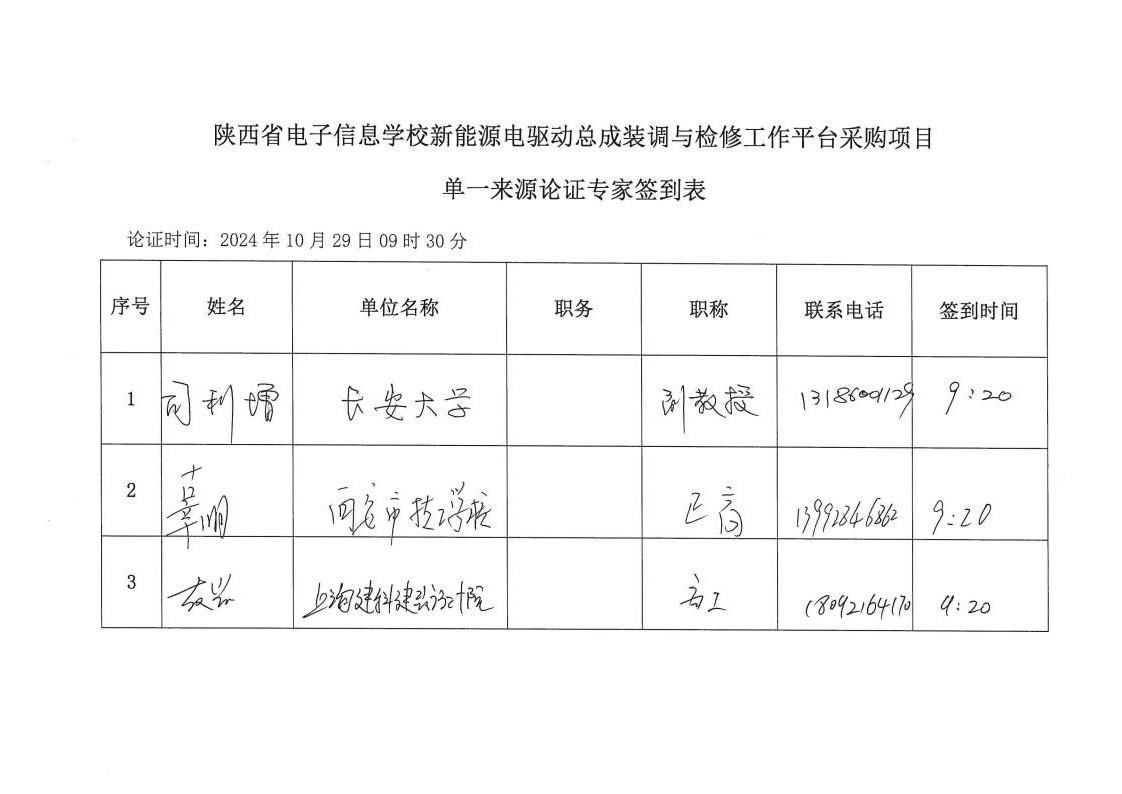 陕西省电子信息学校新能源电驱动总成装调与检修工作平台采购项目
单一来源论证专家签到表
论证时间：2024年10月29日09时30分
序号 姓名 单位名称 职务 职称 联系电话 签到时间
1 司利增 长安大学 副教授 13186001129 9:20
2 西安市技工学校 正高 13992846862 9:20
3 上海建科建筑设计院 高工 18092164170 9:20